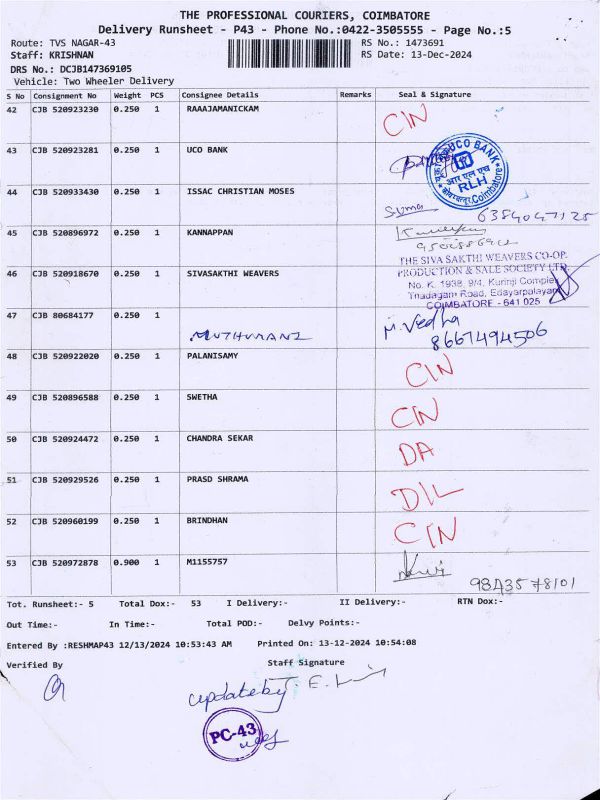 THE PROFESSIONAL COURIERS, COIMBATORE
Delivery Runsheet - P43 - Phone No.:0422-3505555 - Page No.:5
Route: TVS NAGAR-43 RS No.: 1473691
Staff: KRISHNAN RS Date: 13-Dec-2024
DRS No.: DCJB147369105
Vehicle: Two Wheeler Delivery
S No Consignment No Weight PCS Consignee Details Remarks Seal & Signature
42 CJB 520923230 0.250 1 RAAAJAMANICKAM CIN
43 CJB 520923281 0.250 1 UCO BANK
UCO BANK
आर एल एच
RLH
Coimbatore
44 CJB 520933430 0.250 1 ISSAC CHRISTIAN MOSES
Suma 6384047125
45 CJB 520896972 0.250 1 KANNAPPAN
46 CJB 520918670 0.250 1 SIVASAKTHI WEAVERS
THE SIVA SAKTHI WEAVERS CO-OP.
PRODUCTION & SALE SOCIETY LTD.
No. K. 1938, 9/4, Kurinji Complex
Thadagam Road, Edayarpalayam
COIMBATORE - 641 025
47 CJB 80684177 0.250 1
MUTHUMANI
M. Vedha
8667494506
48 CJB 520922020 0.250 1 PALANISAMY CIN
49 CJB 520896588 0.250 1 SWETHA CIN
50 CJB 520924472 0.250 1 CHANDRA SEKAR DA
51 CJB 520929526 0.250 1 PRASD SHRAMA DIL
52 CJB 520960199 0.250 1 BRINDHAN CIN
53 CJB 520972878 0.900 1 M1155757
98435 78101
Tot. Runsheet:- 5 Total Dox:- 53 I Delivery:- II Delivery:- RTN Dox:-
Out Time:- In Time:- Total POD:- Delvy Points:-
Entered By :RESHMAP43 12/13/2024 10:53:43 AM Printed On: 13-12-2024 10:54:08
Verified By Staff Signature
update by
PC-43